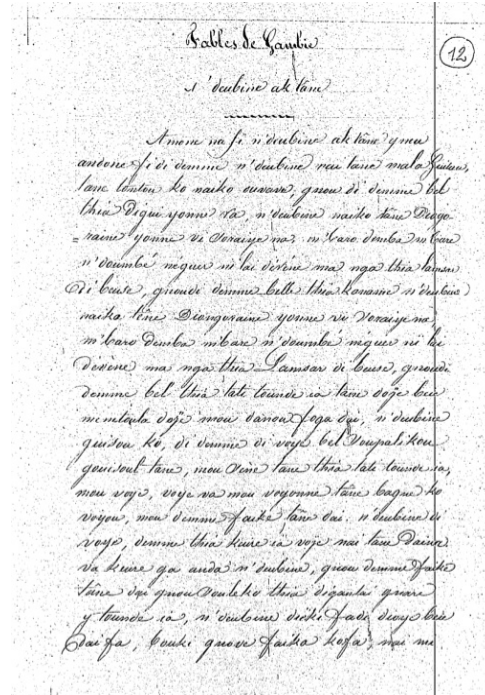 Fables de Gambie
12
n'deubine ak tâne
Amone na fi n'deubine ak tâne ymeu
andone fi di demme n'deubine neu tane mala Guissou,
tane tontou ko naiko ouvave, gnou di demme bel
thia Digui yonne va, n'deubine naiko tâne Diogo
=raine yonne vi soraiye na, m'baro demba m'bare
n'doumbé neguer ni lai dévène ma nga thia Lamsar
di beuse, gnoudi demme belle thia kaname n'deubine
naiko tâne Diongoraine yonne vi soraiye na,
m'baro demba m'bare n'doumbe neguer ni lai
dévène ma nga thia Lamsar di beuse, gnoudi
demme bel thia tate tounde ia tane doje beur
mou danou foga dai, n'deubine
guisou ko, di demme di voye bel
gouisoul tane, mou tane thia tate tounde ia,
mou voye, voye va mou voyonne tâne bagne ko
voyou, mou demme faike tâne dai. n deubine di
voye, demme thia keure ia voye nai tane
va keure ga anda n'deubine, gnou demme faike
tâne dai gnou thia digantė gnare
y tounde ia, n'deubine fadi beu
dai fa, bouki gnove faika kofa, nai me